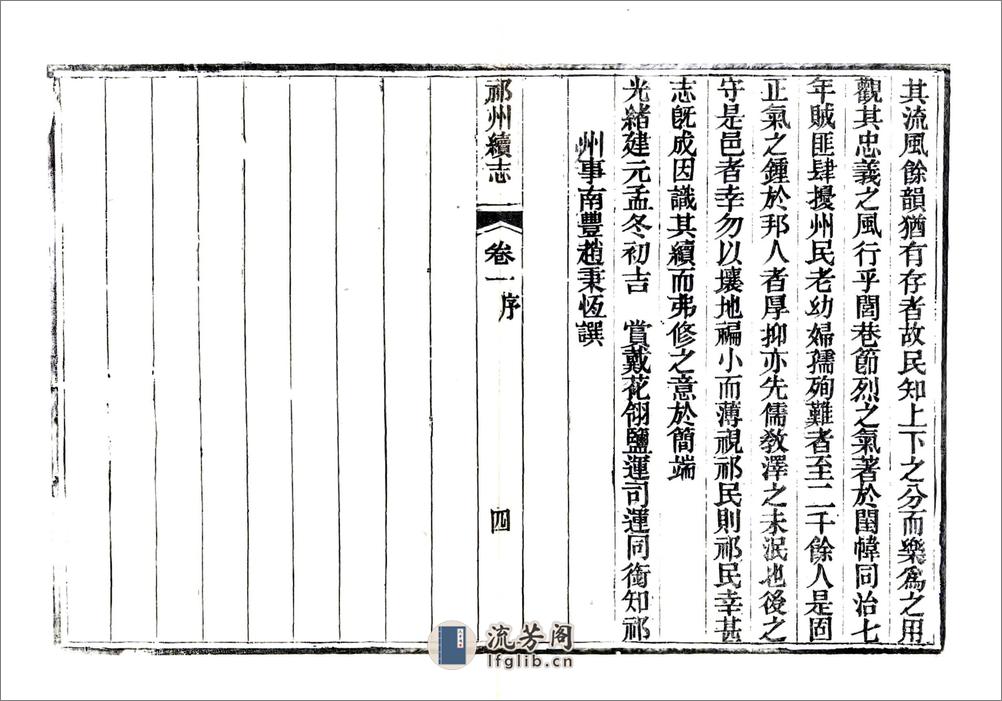 其流風餘韻猶有存者故民知上下之分而樂爲之用
觀其忠義之風行乎閭巷節烈之氣著於閨幃同治七
年賊匪肆擾州民老幼婦孺殉難者至二千餘人是固
正氣之鍾於邦人者厚抑亦先儒敎澤之未泯也後之
守是邑者幸勿以壤地褊小而薄視祁民則祁民幸甚
志旣成因識其續而弗修之意於簡端
光緒建元孟冬初吉　賞戴花翎鹽運司運同銜知祁
州事南豐趙秉恆譔
祁州續志
卷一
序
四
流芳阁
lfglib.cn